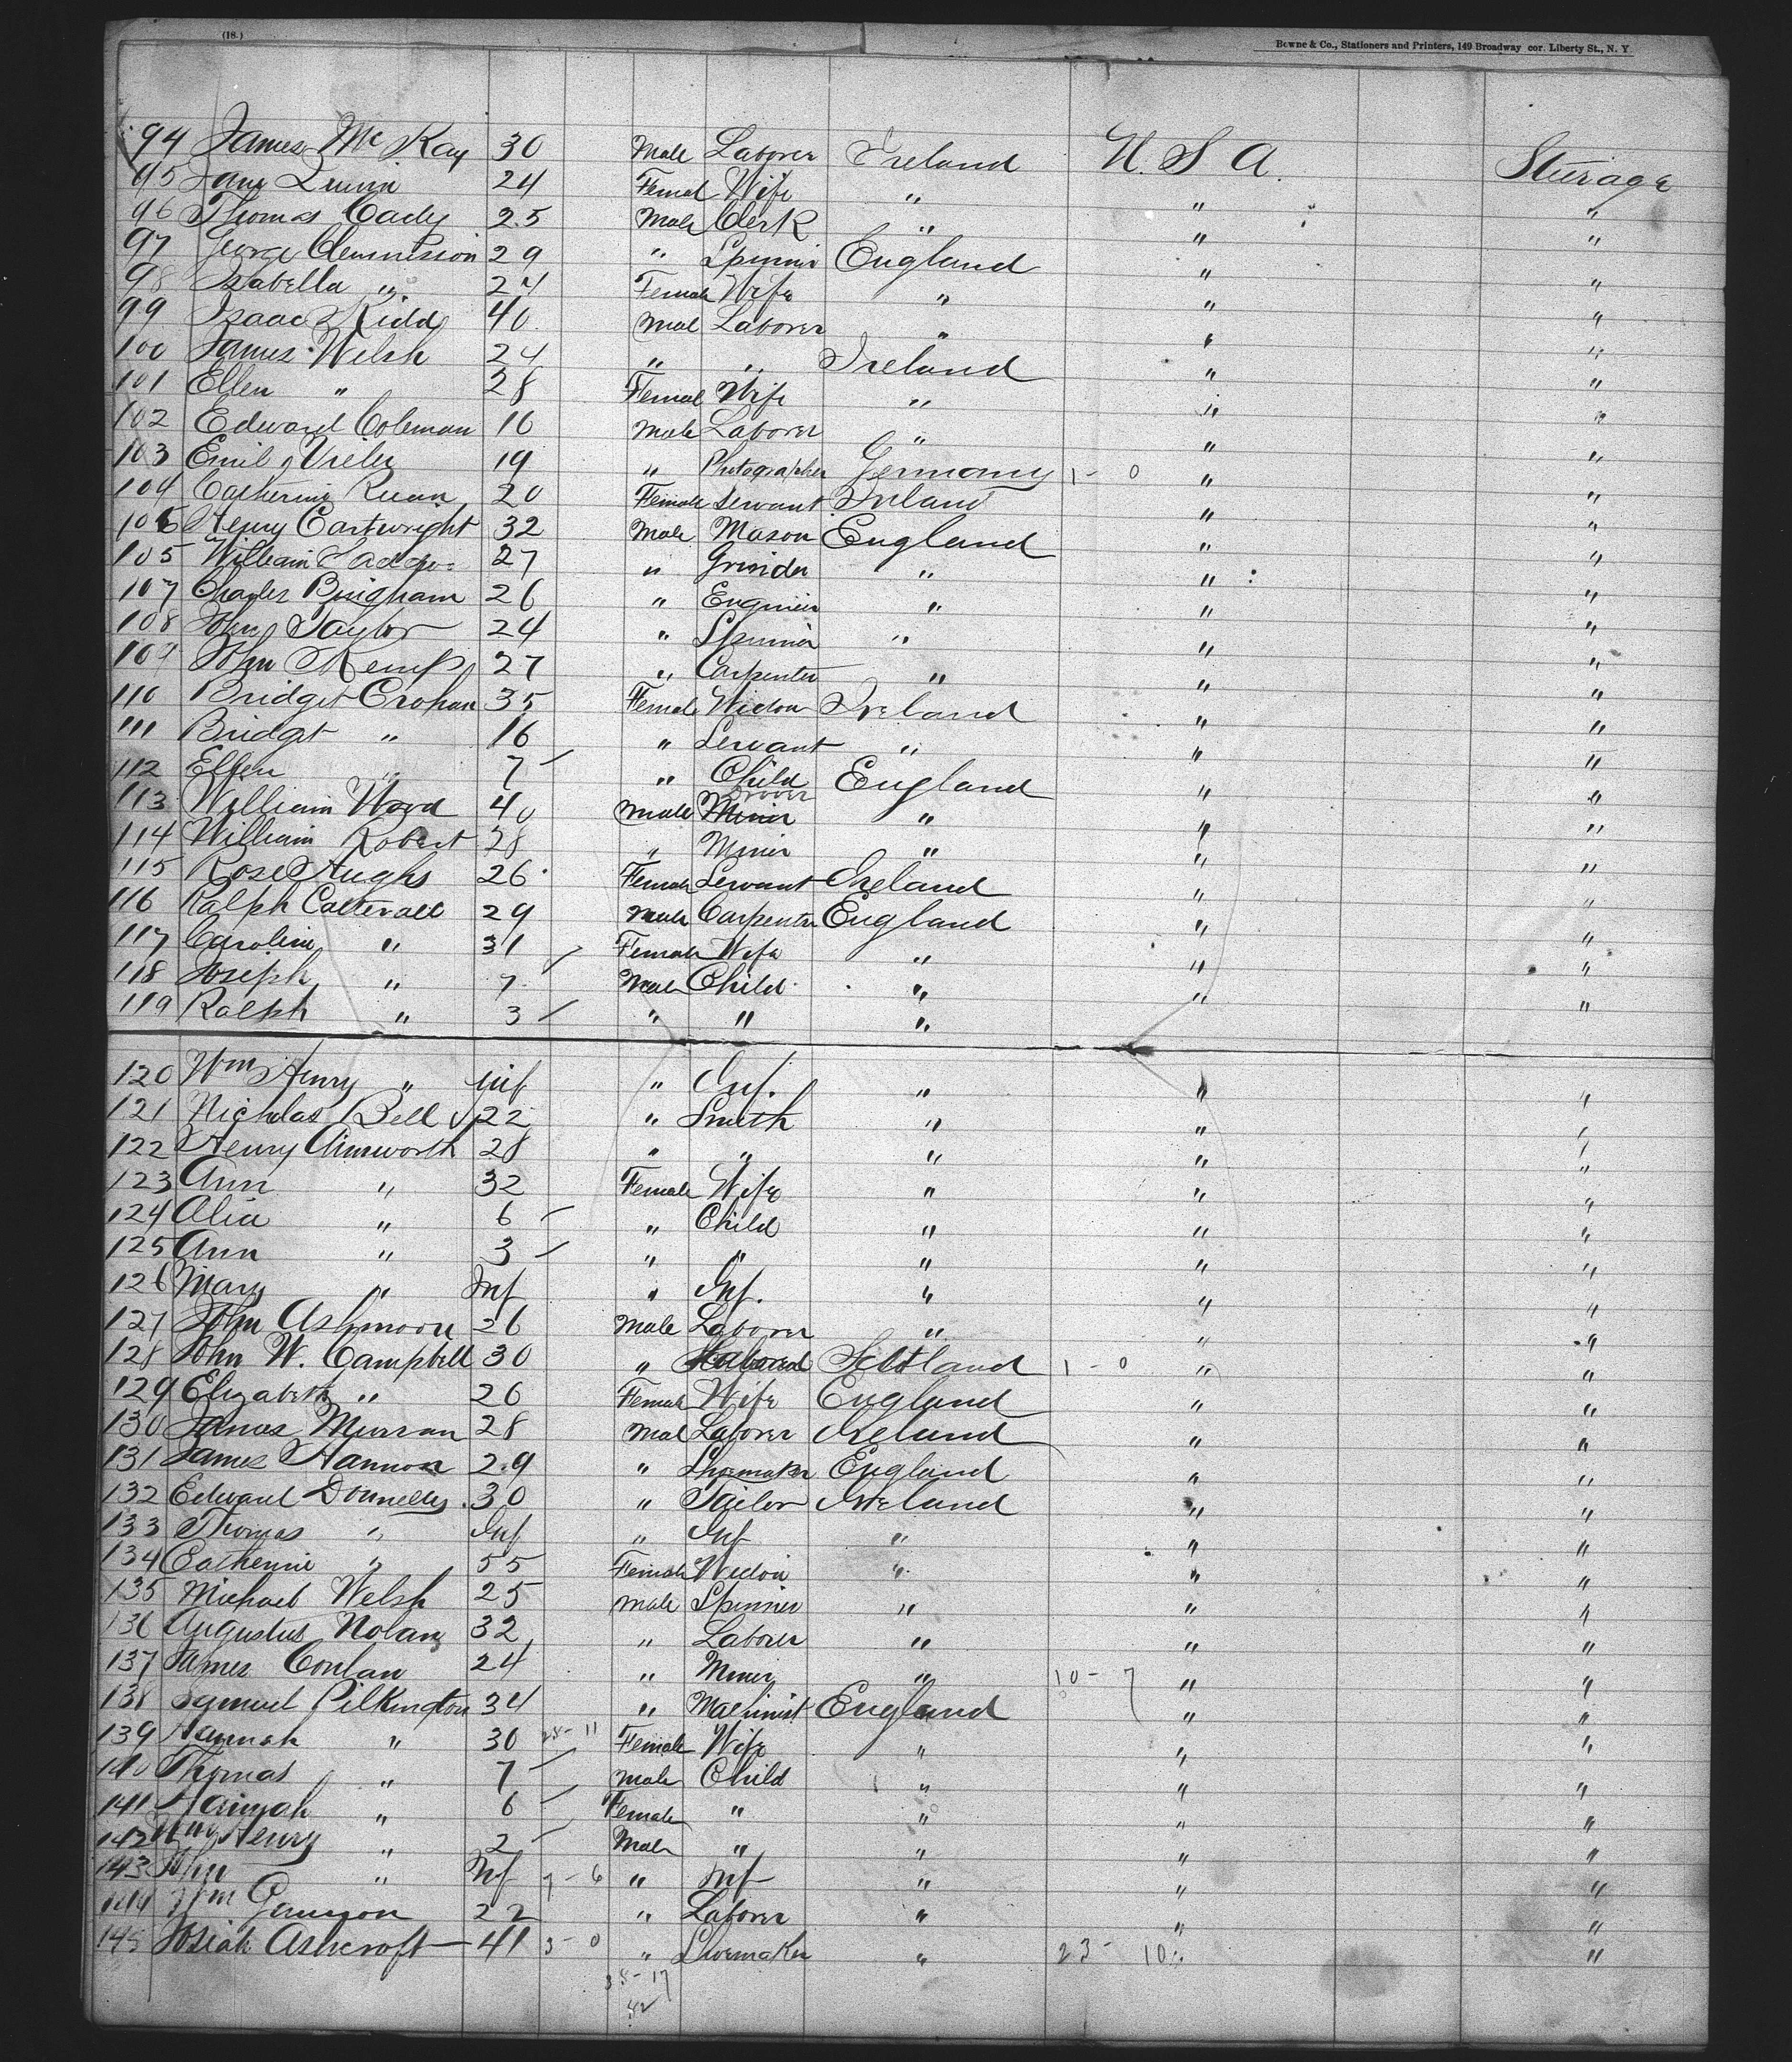 (18.)
Bowne & Co., Stationers and Printers, 149 Broadway cor. Liberty St., N. Y.
94 James McKay 30 Male Laborer Ireland U. S. A. Sturage
95 Jane Quinn 24 Femal Wife " " "
96 Thomas Cady 25 Male Clerk " " "
97 George 29 " Spinner England " "
98 Isabella " 24 Female Wife " " "
99 Isaac Kidd 40 Mal Laborer " " "
100 James Welsh 24 " " Ireland " "
101 Ellen " 28 Femal Wife " " "
102 Edward Coleman 16 Male Laborer " " "
103 Emil 19 " Photographer Germany 1 - 0 " "
104 Catherine Ruan 20 Female Servant Ireland " "
106 Henry Cartwright 32 Male Mason England " "
105 William 27 " Grinder " " "
107 Charles Bingham 26 " Engineer " " "
108 John Taylor 24 " Spinner " " "
109 John Kemp 27 " Carpenter " " "
110 Bridget Crohan 35 Femal Widow Ireland " "
111 Bridget " 16 " Servant " " "
112 Ellen " 7 " Child England " "
113 William Wood 40 Male Miner Drover " " "
114 William Robert 28 " Miner " " "
115 Rose Hughs 26 Female Servant Ireland " "
116 Ralph Catterall 29 Male Carpenter England " "
117 Caroline " 31 Female Wife " " "
118 Joseph " 7 Male Child " " "
119 Ralph " 3 " " " " "
120 Wm Henry " Inf " Inf. " " "
121 Nicholas Bell 22 " Smith " " "
122 Henry Ainsworth 28 " " " " "
123 Ann " 32 Female Wife " " "
124 Alice " 6 " Child " " "
125 Ann " 3 " " " " "
126 Mary " Inf " Inf. " " "
127 John Ashmoon 26 Male Laborer " " "
128 John W. Campbell 30 " Laborer Scotland 1 - 0 " "
129 Elizabeth " 26 Female Wife England " "
130 James Murran 28 Mal Laborer Ireland " "
131 James Hannon 29 " Shoemaker England " "
132 Edward Donnelly 30 " Tailor Ireland " "
133 Thomas " Inf " Inf " " "
134 Catherine " 55 Female Widow " " "
135 Michael Welsh 25 Male Spinner " " "
136 Augustus Nolan 32 " Laborer " " "
137 James Conlan 24 " Miner " 10 - 7 " "
138 Samuel Pilkington 34 " Machinist England " "
139 Hannah " 30 28 - 11 Female Wife " " "
140 Thomas " 7 Male Child " " "
141 Hannah " 6 Female " " " "
142 Wm Henry " 2 Male " " " "
143 John " Inf 7 - 6 " Inf " " "
144 Wm 22 " Laborer " " "
145 Josiah Ashcroft 41 3 - 0 " Shoemaker " 23 - 10 " "
38 - 17